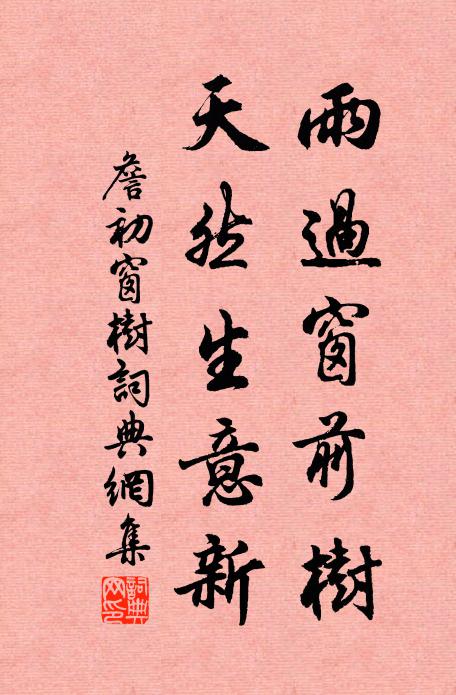 雨過窗前樹
天然生意新
詹初窗樹詞典網集
詞典網印